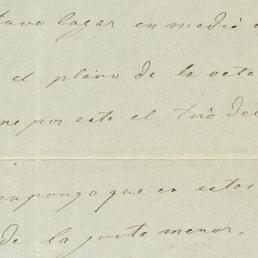 tuvo lugar en medio
el plano de la octa
ne por esta el tiro de
supongo que en estas
de la junta menor.